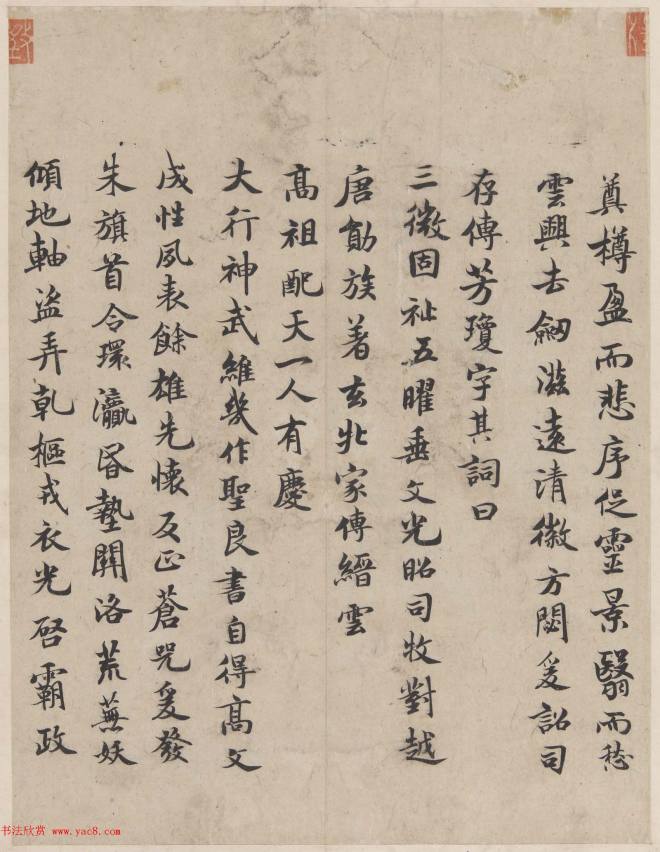 奠樽盈而悲序促靈景翳而愁
雲興去劒滋遠清徽方閟爰詔司
存傳芳瓊字其詞曰
三微固祉五曜垂文光昭司牧對越
唐勛族著玄牝家傳縉雲
高祖配天一人有慶
大行神武維幾作聖良書自得高文
成性夙表餘雄先懷反正蒼兕爰發
朱旗首合環瀛昏墊關洛荒蕪妖
傾地軸盜弄乾樞戎衣光啓霸政
书法欣赏 www.yac8.com